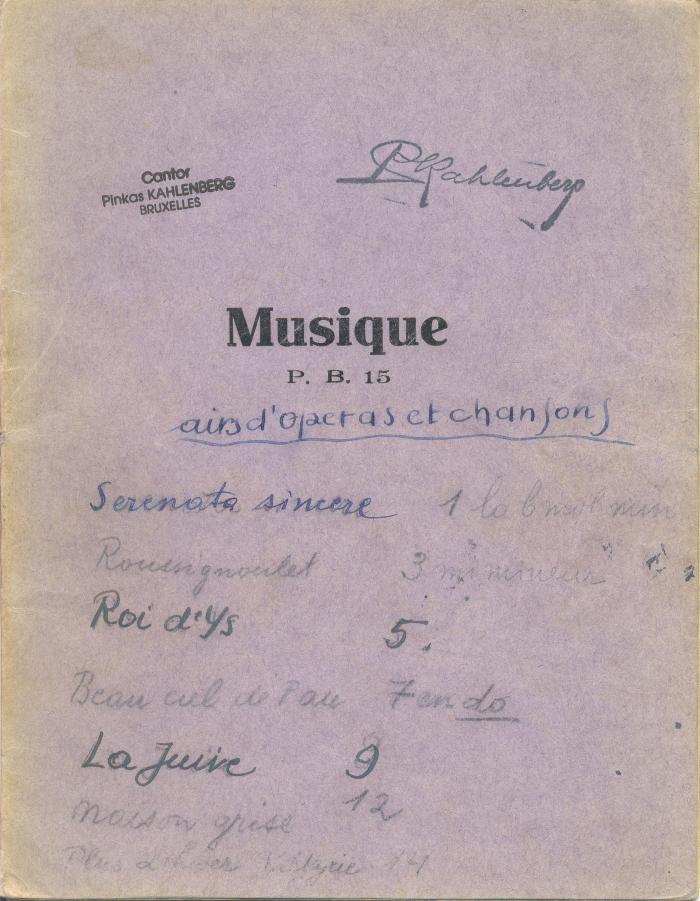 Cantor
Pinkas KAHLENBERG
BRUXELLES
PKahlenberg
Musique
P. B. 15
airs d'operas et chansons
Serenata sincere 1 la b mol min
Roussignoulet 3 mi mineur
Roi d'Ys 5.
Beau ciel de Pau 7 en do
La Juive 9
maison grise 12
Plus d'hiver 14